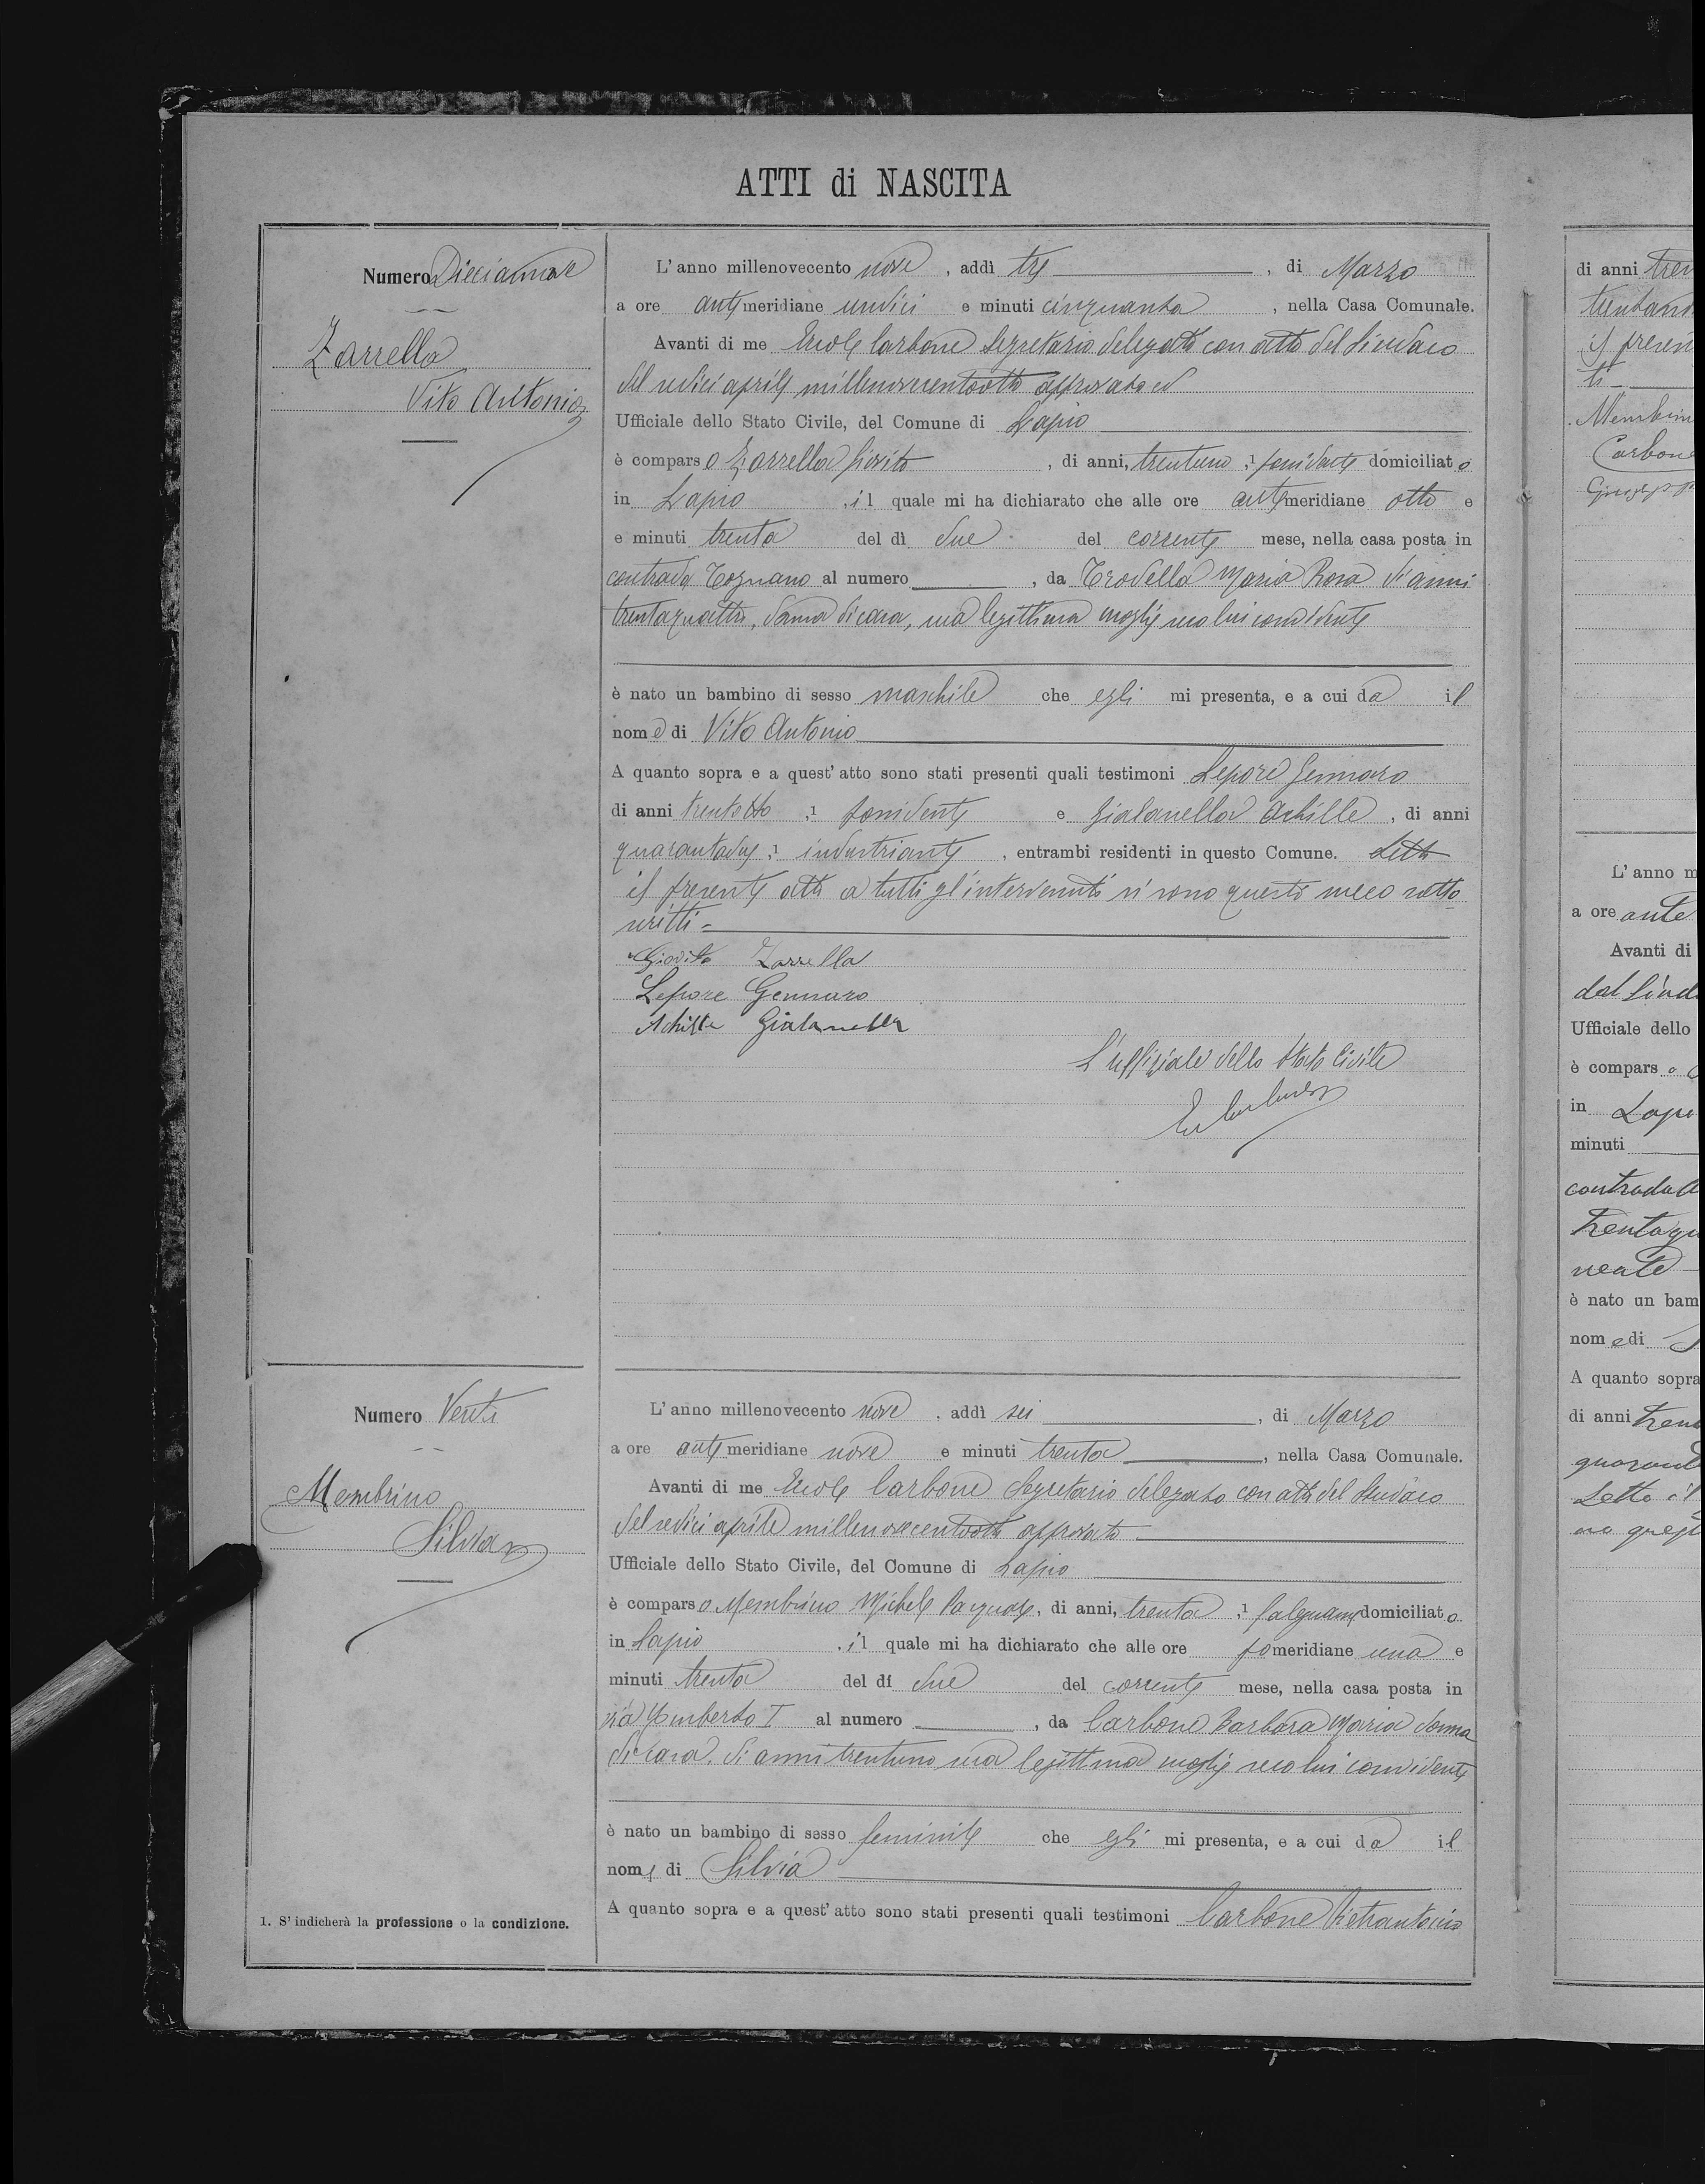 ATTI di NASCITA
Numero Diciannove
Zarrella
Vito Antonio
L'anno millenovecento nove, addì tre, di Marzo
a ore antimeridiane undici e minuti cinquanta, nella Casa Comunale.
Avanti di me Ercole Carbone Segretario delegato con atto del Sindaco
del sedici aprile millenovecentootto approvato ed
Ufficiale dello Stato Civile, del Comune di Lapio
è comparso Zarrella Giovito, di anni, trentuno, 1 possidente domiciliato
in Lapio, il quale mi ha dichiarato che alle ore antimeridiane otto e
e minuti trenta del dì due del corrente mese, nella casa posta in
contrada Cognano al numero, da Trodella Maria Rosa di anni
trentaquattro, donna di casa, sua legittima moglie seco lui convivente
è nato un bambino di sesso maschile che egli mi presenta, e a cui dà il
nome di Vito Antonio
A quanto sopra e a quest'atto sono stati presenti quali testimoni Lepore Gennaro
di anni trentotto, 1 possidente e Gialanella Achille, di anni
quarantadue, 1 industriante, entrambi residenti in questo Comune. Letto
il presente atto a tutti gl'intervenuti si sono questi meco sotto
scritti =
Giovito Zarrella
Lepore Gennaro
Achille Gialanella
L'uffiziale dello Stato Civile
E. Carbone
Numero Venti
Membrino
Silvia
L'anno millenovecento nove, addì sei, di Marzo
a ore antimeridiane nove e minuti trenta, nella Casa Comunale.
Avanti di me Ercole Carbone Segretario delegato con atto del Sindaco
del sedici aprile millenovecentootto approvato
Ufficiale dello Stato Civile, del Comune di Lapio
è comparso Membrino Michele Pasquale, di anni, trenta, 1 falegname domiciliato
in Lapio, il quale mi ha dichiarato che alle ore pomeridiane una e
minuti trenta del dì due del corrente mese, nella casa posta in
via Umberto I al numero, da Carbone Barbara Maria donna
di casa, di anni trentuno sua legittima moglie seco lui convivente
è nato un bambino di sesso feminile che egli mi presenta, e a cui dà il
nome di Silvia
A quanto sopra e a quest'atto sono stati presenti quali testimoni Carbone Pietrantonio
1. S'indicherà la professione o la condizione.
di anni tren
il presen
Membrin
Carbone
Giusepp
L'anno m
a ore ante
Avanti di
dal Sind
Ufficiale dello
è comparso
in Lapi
minuti
contrada
trentaqu
è nato un bam
nome di
A quanto sopra
di anni tren
quarant
Letto il